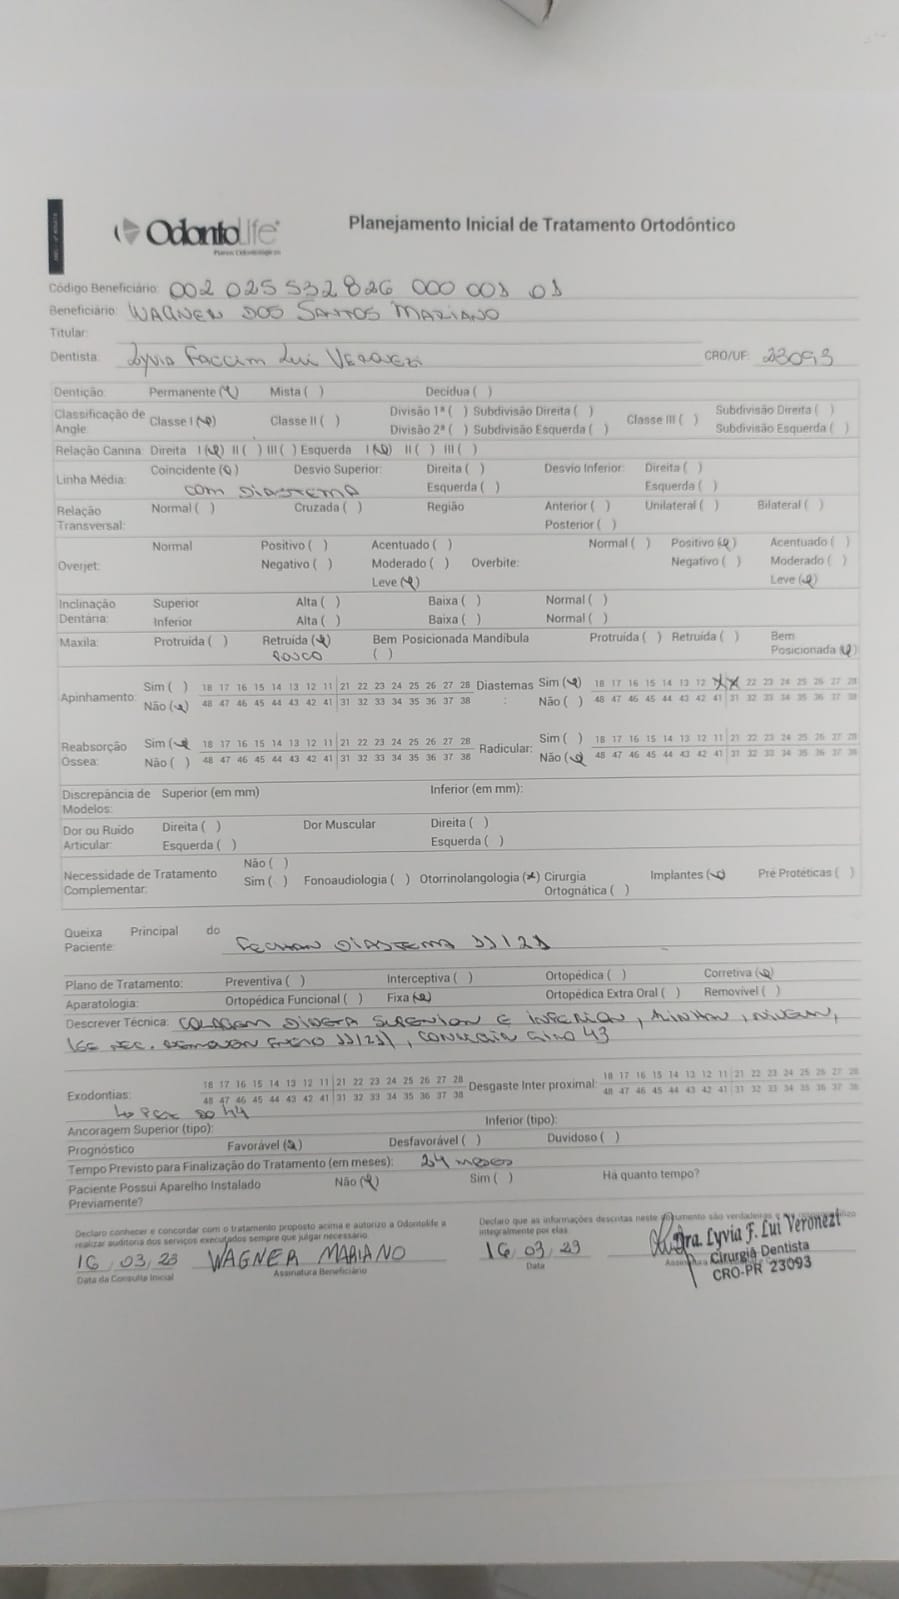 OdontoLife
Planos Odontológicos
Planejamento Inicial de Tratamento Ortodôntico
Código Beneficiário: 002 025 532 826 000 001 01
Beneficiário: WAGNER DOS SANTOS MARIANO
Titular:
Dentista: Lyvia Faccim Lui Veronezi CRO/UF: 23093
Dentição: Permanente (x) Mista ( ) Decídua ( )
Classificação de Angle: Classe I (x) Classe II ( ) Divisão 1ª ( ) Subdivisão Direita ( ) Classe III ( ) Subdivisão Direita ( )
Divisão 2ª ( ) Subdivisão Esquerda ( ) Subdivisão Esquerda ( )
Relação Canina: Direita I (x) II ( ) III ( ) Esquerda I (x) II ( ) III ( )
Linha Média: Coincidente (x) Desvio Superior: Direita ( ) Desvio Inferior: Direita ( )
COM DIASTEMA Esquerda ( ) Esquerda ( )
Relação Transversal: Normal ( ) Cruzada ( ) Região Anterior ( ) Unilateral ( ) Bilateral ( )
Posterior ( )
Overjet: Normal Positivo ( ) Acentuado ( ) Overbite: Normal ( ) Positivo (x) Acentuado ( )
Negativo ( ) Moderado ( ) Negativo ( ) Moderado ( )
Leve (x) Leve (x)
Inclinação Dentária: Superior Alta ( ) Baixa ( ) Normal ( )
Inferior Alta ( ) Baixa ( ) Normal ( )
Maxila: Protruída ( ) Retruída (x) Bem Posicionada ( ) Mandíbula Protruída ( ) Retruída ( ) Bem Posicionada (x)
POUCO
Apinhamento: Sim ( ) 18 17 16 15 14 13 12 11 21 22 23 24 25 26 27 28 Diastemas: Sim (x) 18 17 16 15 14 13 12 X X 22 23 24 25 26 27 28
Não (x) 48 47 46 45 44 43 42 41 31 32 33 34 35 36 37 38 Não ( ) 48 47 46 45 44 43 42 41 31 32 33 34 35 36 37 38
Reabsorção Óssea: Sim (x) 18 17 16 15 14 13 12 11 21 22 23 24 25 26 27 28 Radicular: Sim ( ) 18 17 16 15 14 13 12 11 21 22 23 24 25 26 27 28
Não ( ) 48 47 46 45 44 43 42 41 31 32 33 34 35 36 37 38 Não (x) 48 47 46 45 44 43 42 41 31 32 33 34 35 36 37 38
Discrepância de Modelos: Superior (em mm) Inferior (em mm):
Dor ou Ruído Articular: Direita ( ) Dor Muscular Direita ( )
Esquerda ( ) Esquerda ( )
Necessidade de Tratamento Complementar: Não ( )
Sim ( ) Fonoaudiologia ( ) Otorrinolangologia (x) Cirurgia Ortognática ( ) Implantes (x) Pré Protéticas ( )
Queixa Principal do Paciente: FECHAR DIASTEMA 11/21
Plano de Tratamento: Preventiva ( ) Interceptiva ( ) Ortopédica ( ) Corretiva (x)
Aparatologia: Ortopédica Funcional ( ) Fixa (x) Ortopédica Extra Oral ( ) Removível ( )
Descrever Técnica: COLAGEM DIRETA SUPERIOR E INFERIOR, ALINHAR, NIVELAR,
REMOVER FREIO 11/21, CORRIGIR GIRO 43
Exodontias: 18 17 16 15 14 13 12 11 21 22 23 24 25 26 27 28 Desgaste Inter proximal: 18 17 16 15 14 13 12 11 21 22 23 24 25 26 27 28
48 47 46 45 44 43 42 41 31 32 33 34 35 36 37 38 48 47 46 45 44 43 42 41 31 32 33 34 35 36 37 38
DO 44
Ancoragem Superior (tipo): Inferior (tipo):
Prognóstico Favorável (x) Desfavorável ( ) Duvidoso ( )
Tempo Previsto para Finalização do Tratamento (em meses): 24 meses
Paciente Possui Aparelho Instalado Previamente? Não (x) Sim ( ) Há quanto tempo?
Declaro conhecer e concordar com o tratamento proposto acima e autorizo a Odontolife a realizar auditoria dos serviços executados sempre que julgar necessário.
Declaro que as informações descritas neste documento são verdadeiras integralmente por elas.
16, 03, 23 WAGNER MARIANO 16, 03, 23
Dra. Lyvia F. Lui Veronezi
Cirurgiã Dentista
CRO-PR 23093
Data da Consulta Inicial Assinatura Beneficiário Data